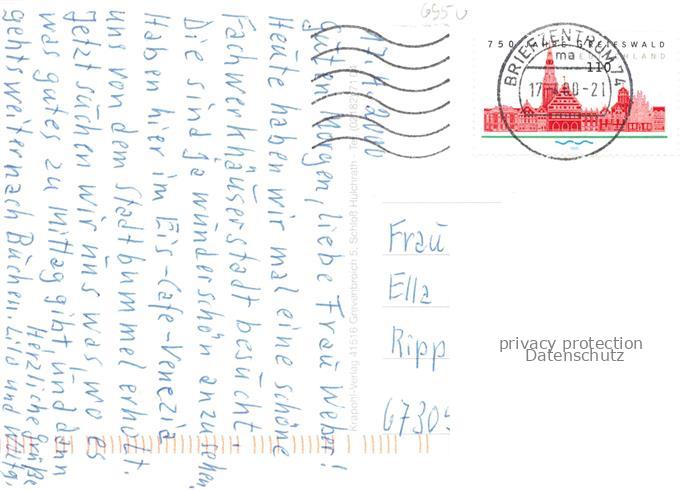 17.4.2000
Guten Morgen, liebe Frau Weber!
Heute haben wir mal eine schöne
Fachwerkhäuserstadt besucht.
Die sind ja wunderschön anzusehen.
Haben hier im Eis-Cafe-Venezia
uns von dem Stadtbummel erholt.
Jetzt suchen wir uns was, wo es
was gutes zu Mittag gibt und dann
gehts weiter nach Büchen.
Herzliche Grüße
Lilo und
Krapohl-Verlag 41516 Grevenbroich 5, Schloß Hülchrath - Tel.
6950
750 JAHRE GREIFSWALD
DEUTSCHLAND
110
BRIEFZENTRUM 74
ma
-21
Frau
Ella
Ripp
6730
privacy protection
Datenschutz